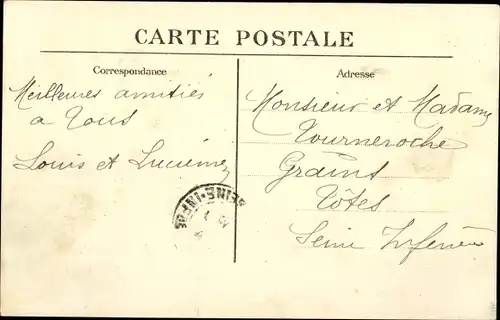 CARTE POSTALE
Correspondance
Adresse
Meilleures amitiés
a Vous
Louis et Lucienne
Monsieur et Madame
Tourneroche
Grains
Tôtes
Seine Inférieure
SEINE-INFRE